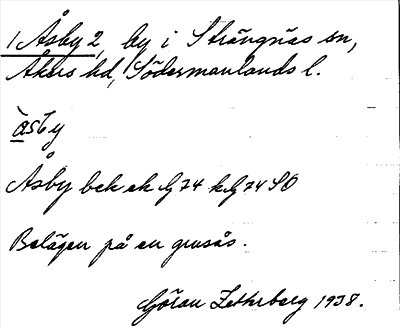 1 Åsby 2, by i Strängnäs sn,
Åkers hd, Södermanlands l.
àsby
Åsby bek ek G 74 kG 74 SO
Belägen på en grusås.
Göran Zetterberg 1938.